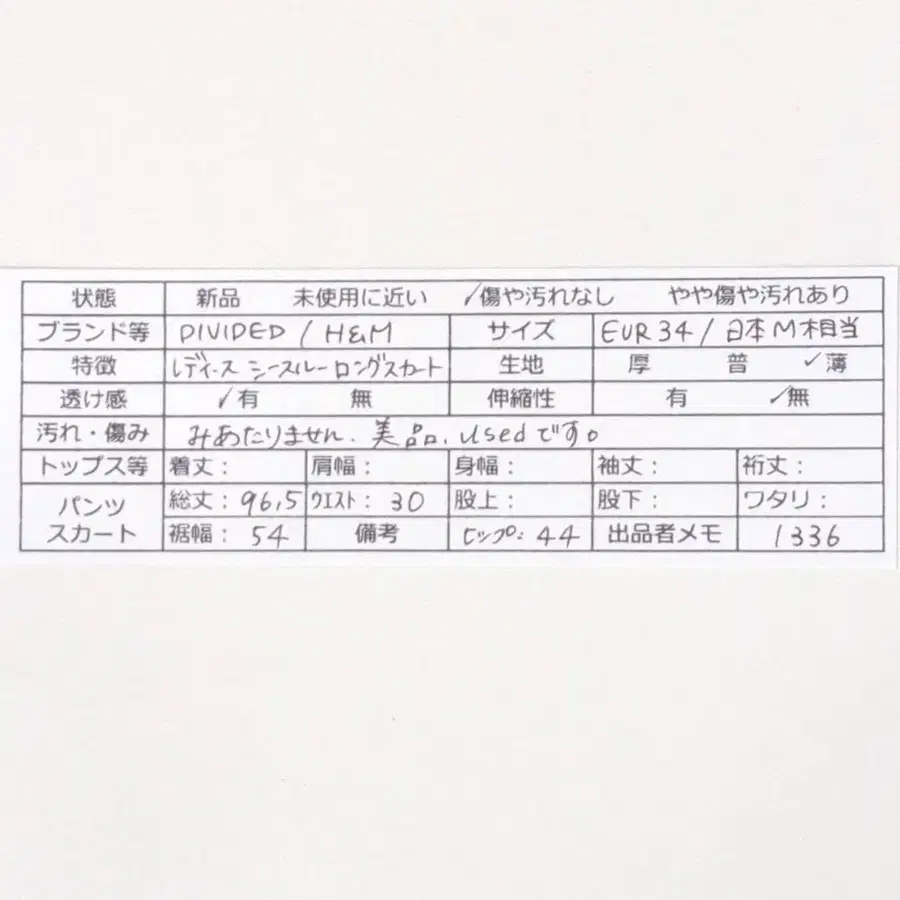 状態 新品 未使用に近い ✓傷や汚れなし やや傷や汚れあり
ブランド等 DIVIDED / H&M サイズ EUR 34 / 日本M相当
特徴 レディース シースルーロングスカート 生地 厚 普 ✓薄
透け感 ✓有 無 伸縮性 有 ✓無
汚れ・傷み みあたりません。美品。usedです。
トップス等 着丈: 肩幅: 身幅: 袖丈: 裄丈:
パンツ スカート 総丈: 96,5 ウエスト: 30 股上: 股下: ワタリ:
裾幅: 54 備考 ヒップ: 44 出品者メモ 1336